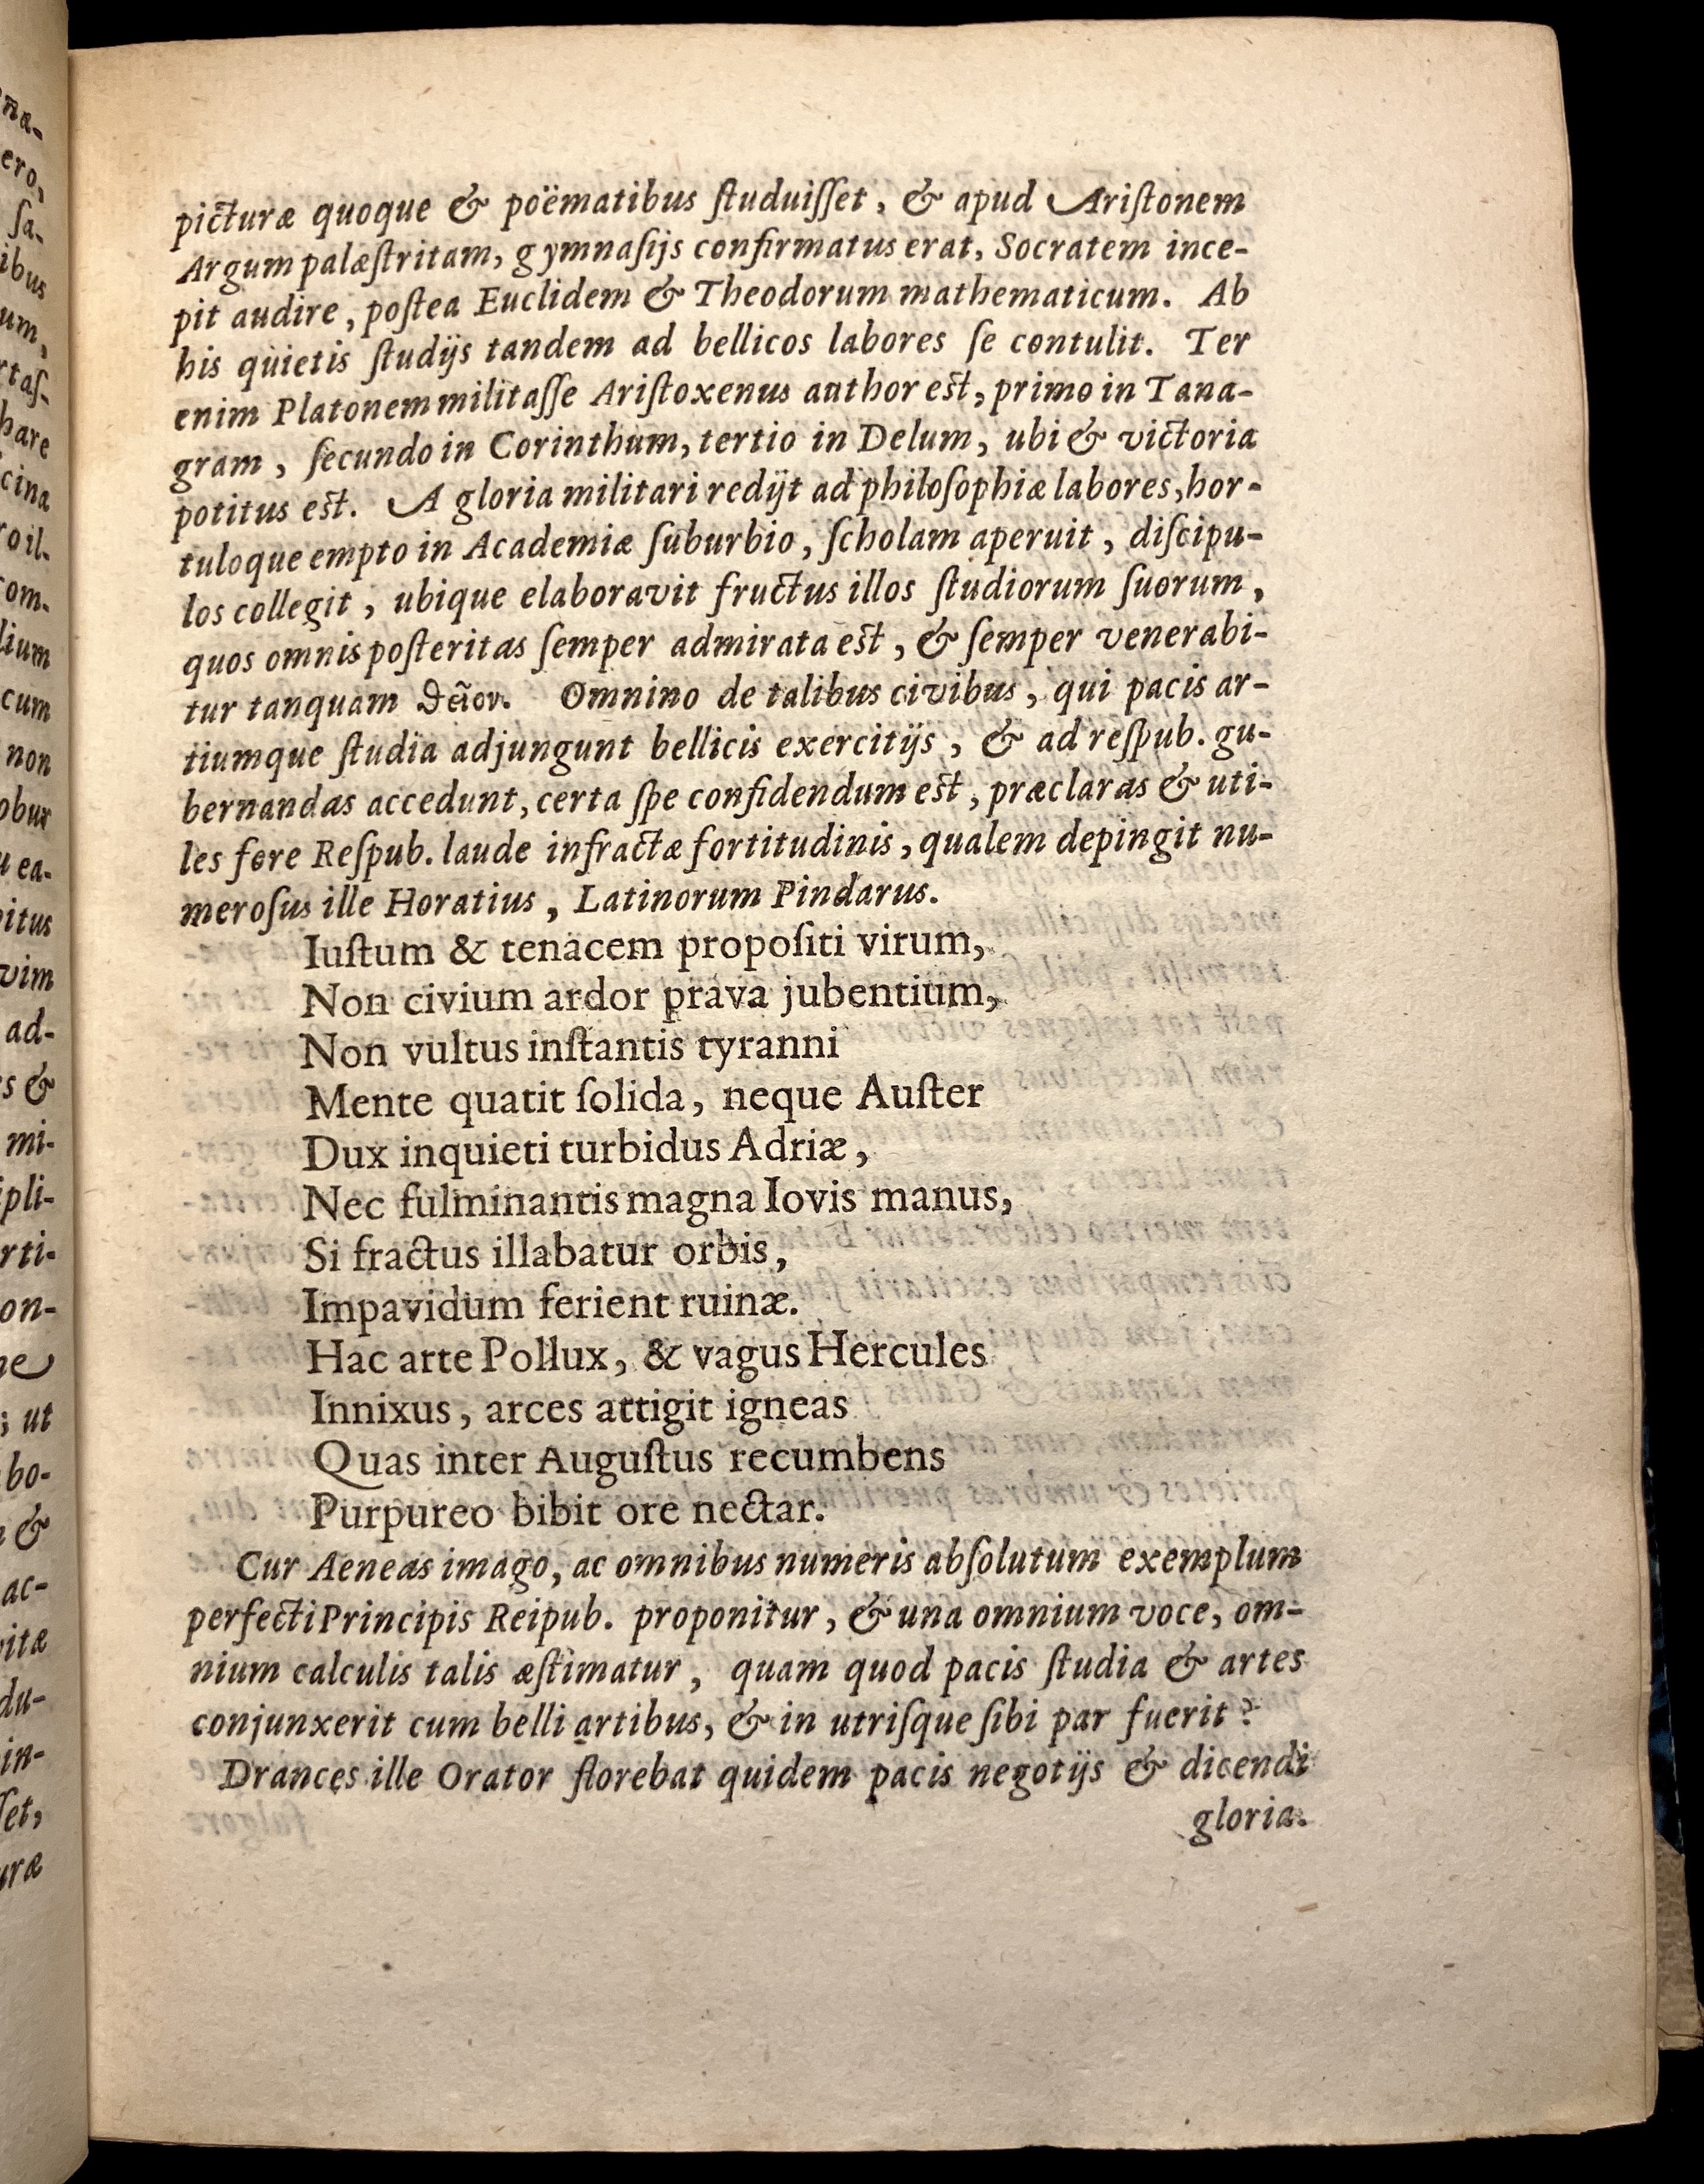 picturæ quoque & poëmatibus ſtuduiſſet, & apud Ariſtonem
Argum palæſtritam, gymnaſijs confirmatus erat, Socratem ince-
pit audire, poſtea Euclidem & Theodorum mathematicum. Ab
his quietis ſtudijs tandem ad bellicos labores ſe contulit. Ter
enim Platonem militaſſe Ariſtoxenus author eſt, primo in Tana-
gram, ſecundo in Corinthum, tertio in Delum, ubi & victoria
potitus eſt. A gloria militari redijt ad philoſophiæ labores, hor-
tuloque empto in Academiæ ſuburbio, ſcholam aperuit, diſcipu-
los collegit, ubique elaboravit fructus illos ſtudiorum ſuorum,
quos omnis poſteritas ſemper admirata eſt, & ſemper venerabi-
tur tanquam θεῖον. Omnino de talibus civibus, qui pacis ar-
tiumque ſtudia adjungunt bellicis exercitijs, & ad reſpub. gu-
bernandas accedunt, certa ſpe confidendum eſt, præclaras & uti-
les fore Reſpub. laude infractæ fortitudinis, qualem depingit nu-
meroſus ille Horatius, Latinorum Pindarus.
Iuſtum & tenacem propoſiti virum,
Non civium ardor prava jubentium,
Non vultus inſtantis tyranni
Mente quatit ſolida, neque Auſter
Dux inquieti turbidus Adriæ,
Nec fulminantis magna Iovis manus,
Si fractus illabatur orbis,
Impavidum ferient ruinæ.
Hac arte Pollux, & vagus Hercules
Innixus, arces attigit igneas
Quas inter Auguſtus recumbens
Purpureo bibit ore nectar.
Cur Aeneas imago, ac omnibus numeris abſolutum exemplum
perfecti Principis Reipub. proponitur, & una omnium voce, om-
nium calculis talis æſtimatur, quam quod pacis ſtudia & artes
conjunxerit cum belli artibus, & in utriſque ſibi par fuerit?
Drances ille Orator florebat quidem pacis negotijs & dicendi
gloria.